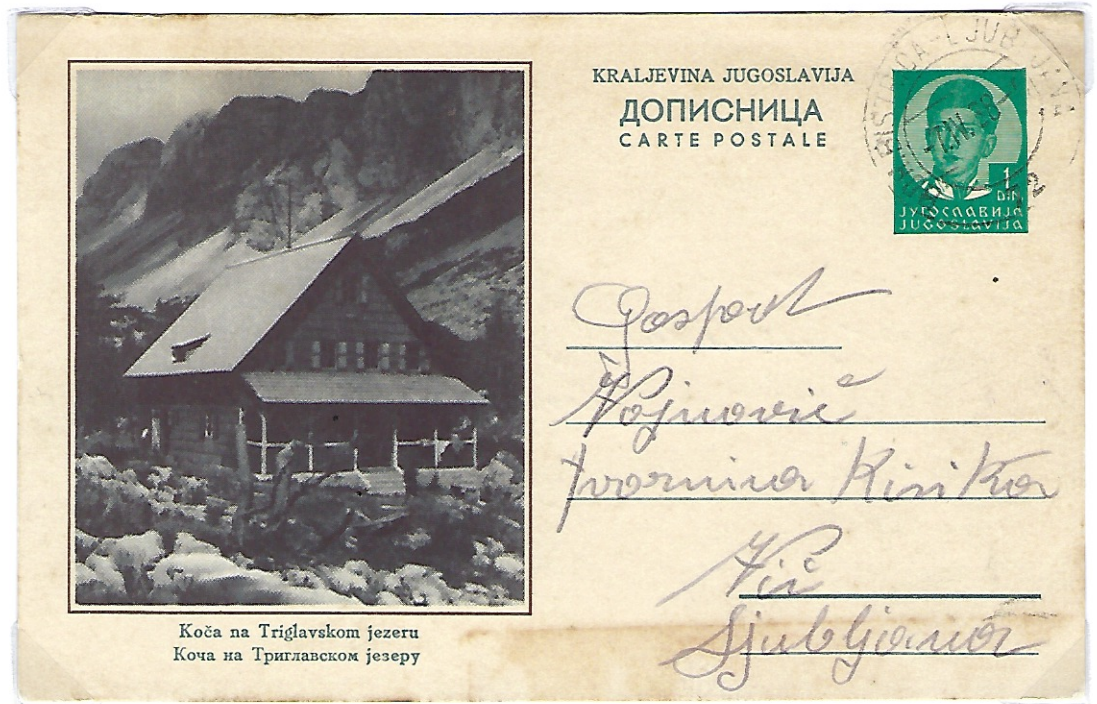 KRALJEVINA JUGOSLAVIJA
ДОПИСНИЦА
CARTE POSTALE
1
DIN
ЈУГОСЛАВИЈА
JUGOSLAVIJA
Gospod
Vojnović
tvornina Kinika
Vič
Ljubljana
Koča na Triglavskom jezeru
Коча на Триглавском језеру